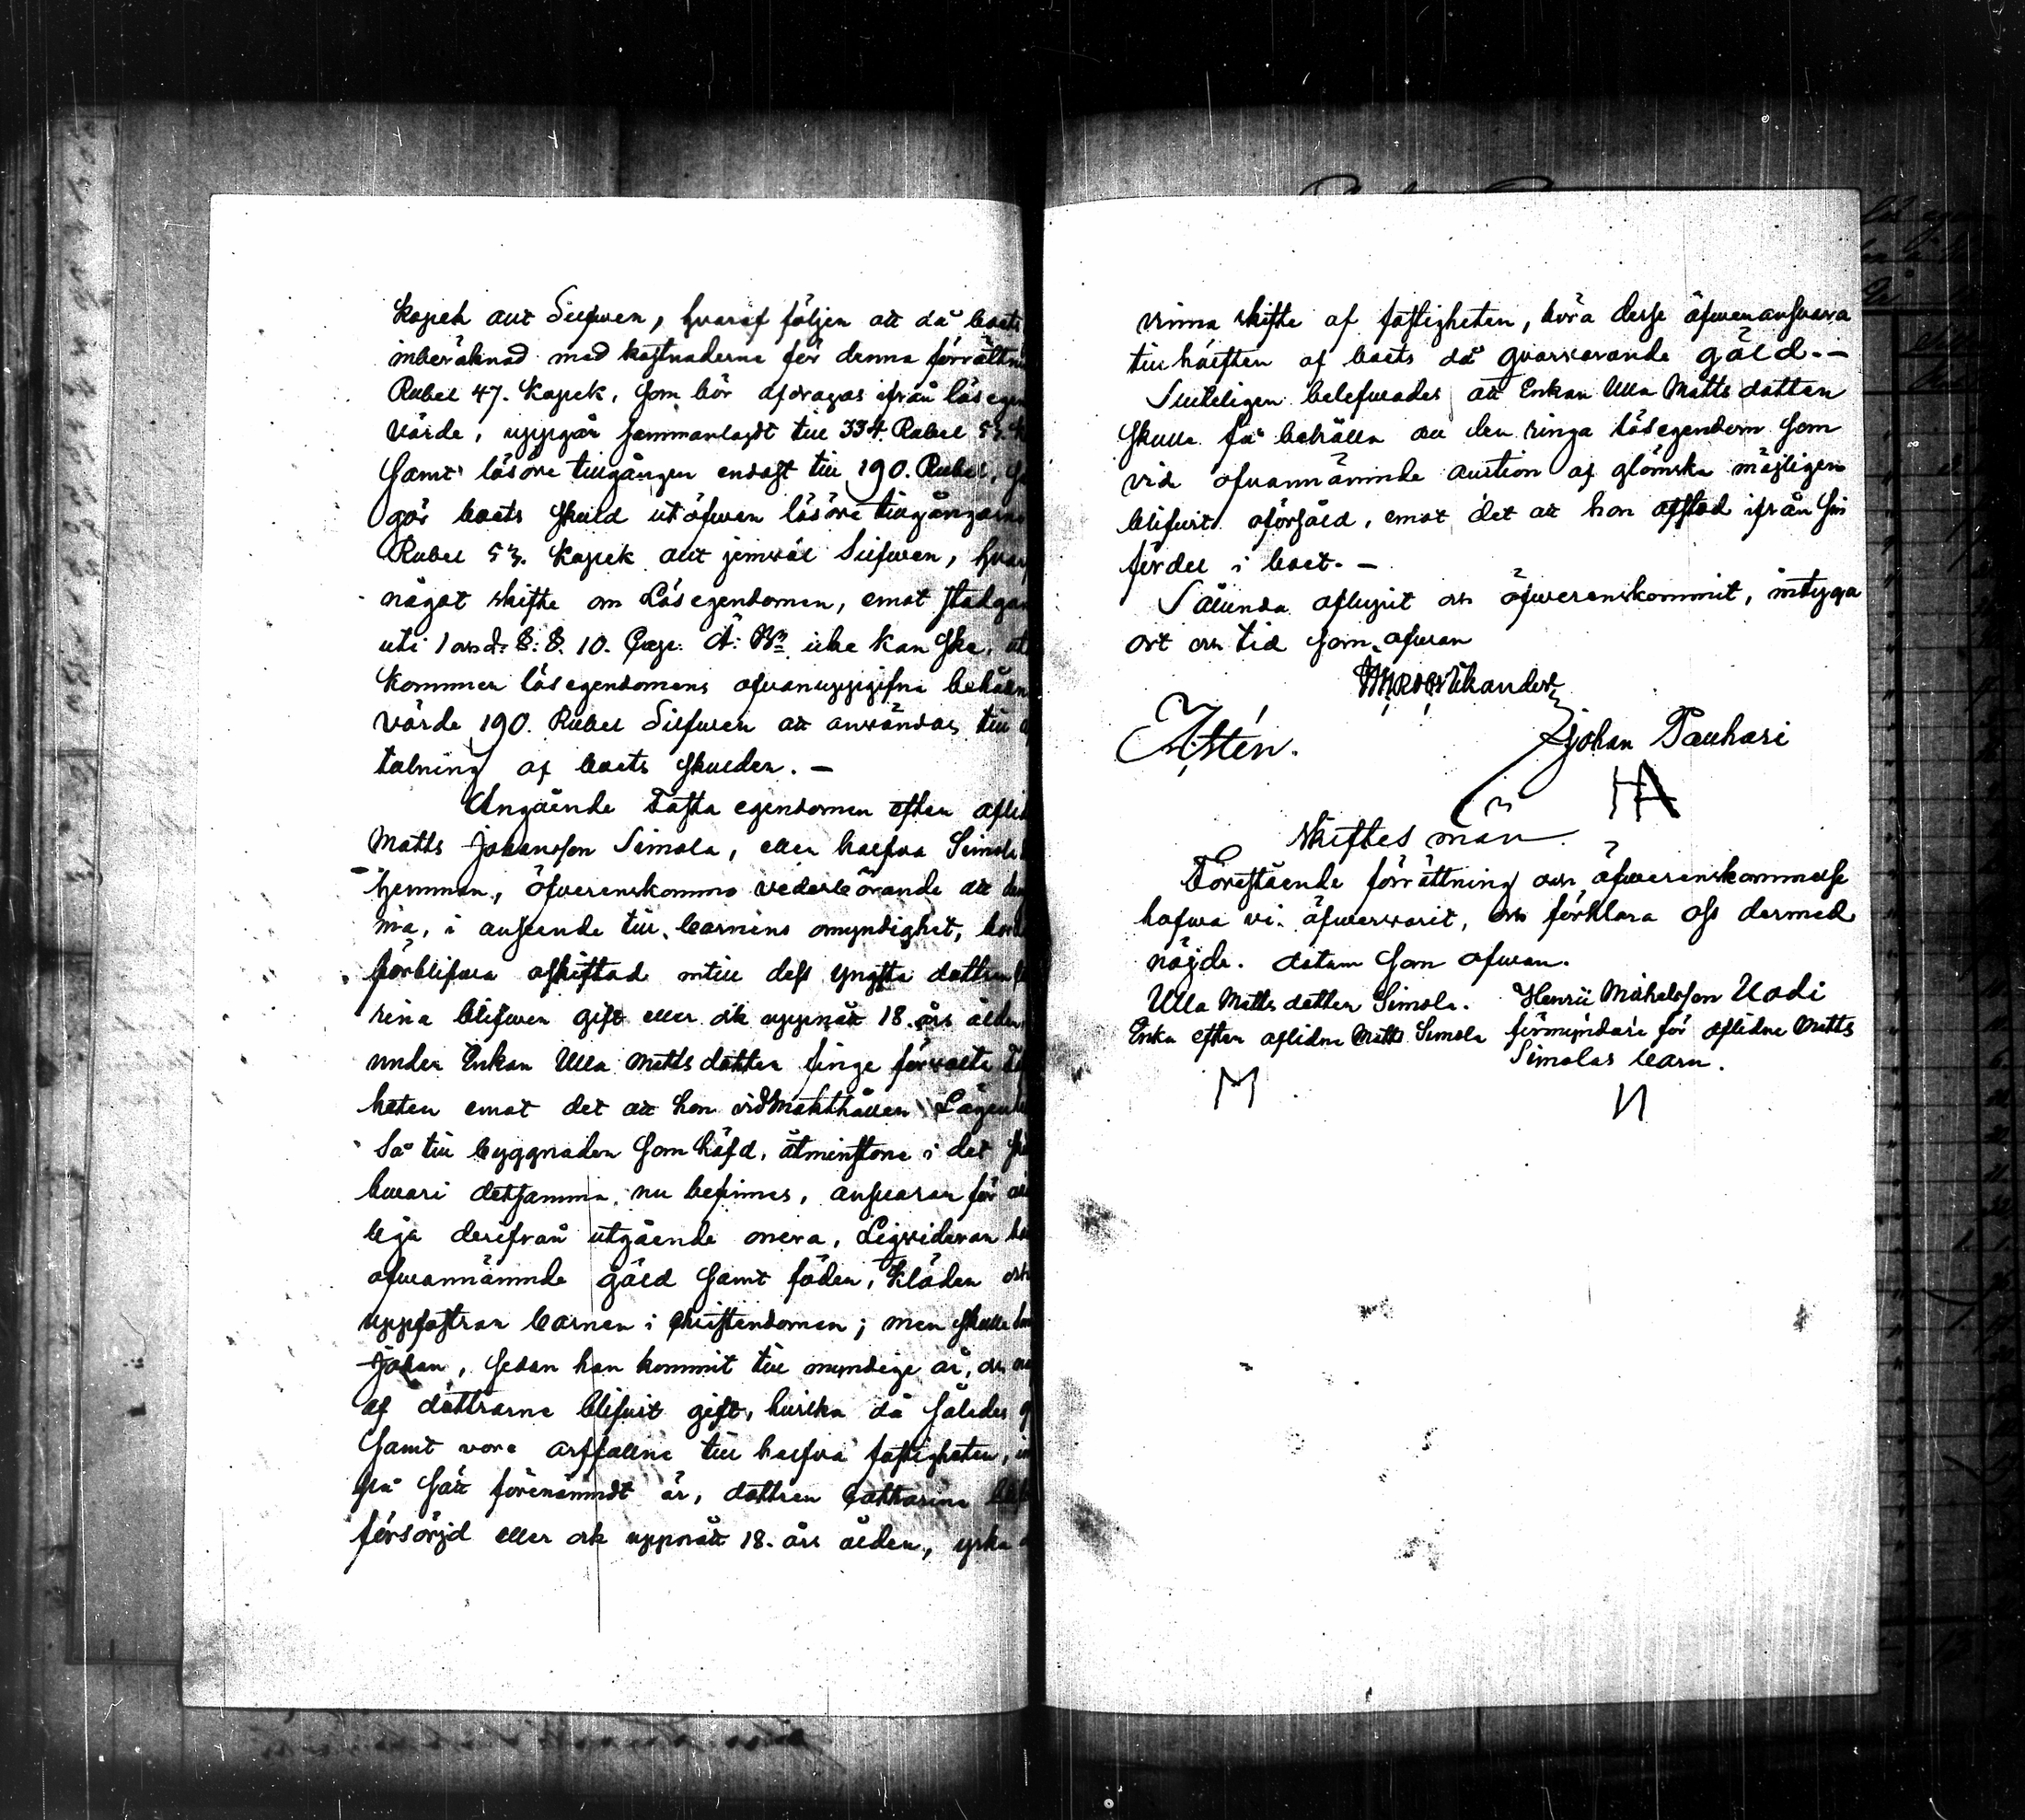 Kopek allt Silfwer, hvaraf följer att då boets
inberäknad med kostnaderne för denna förrättni
Rubel 47. Kopek, som bör afdragas ifrån lösegen
värde, uppgår sammanlagdt till 334. Rubel 53. K
samt lösöre tillgången endast till 190. Rubel,
går boets skuld utöfwer lösöre tillgångarne
Rubel 53. Kopek allt jemwäl Silfwer, hvar
något skifte om Lösegendomen, emot stadgan
uti 1 och 2. §. §. 10. Cap. Ä: B: icke kan ske, ut
kommer lösegendomens ofvanuppgifne behålln
värde 190. Rubel Silfwer att användas till
talning af boets skulder. —
Angående Fasta egendomen efter aflid
Matts Johansson Simola, eller halfva Simola
hemman, öfverenskommo vederbörande att den
ma, i anseende till barnens omyndighet, borde
förblifwa oskiftad intill dess yngsta dottren
rina blifwer gift eller ock uppnått 18. års ålder,
under Enkan Ulla Matts dotter finge förvalta
heten emot det att hon vidmakthåller Lägen
så till byggnader som häfd, åtminstone i det
hwari detsamma nu befinnes, ansvarar för
liga derifrån utgående onera, Liqvideran
ofwannämnde gäld samt föder, kläder och
uppfostrar barnen i christendomen; men skulle
Johan, sedan han kommit till myndige år, och
af döttrarne blifwit gift, hvilka då således
samt vore arffallne till halfva fastigheten,
på sätt förenämndt är, dottren Catharina
försörjd eller ock uppnått 18. års ålder, yrka
vinna skifte af fastigheten, böra desse äfwen ansvara
till hälften af boets då qvarvarande gäld. —
Slutligen belefwades att Enkan Ulla Matts dotter
skulle få behålla all den ringa lösegendom som
vid ofvannämnde auction af glömska möjligen
blifwit oförsåld, emot det att hon afstod ifrån sin
fördel i boet. —
Sålunda aflupit och öfwerenskommit, intyga
ort och tid som ofwan
Wikander
Astén.
Johan Pauhari
HA
Skiftes män.
Förestående förrättning och öfwerenskommelse
hafwa vi öfwerwarit, och förklara oss dermed
nöjde. datum som ofwan.
Ulla Matts dotter Simola. Henric Michelsson Uodi
Enka efter aflidne Matts Simola förmyndare för aflidne Matts
Simolas barn.
M